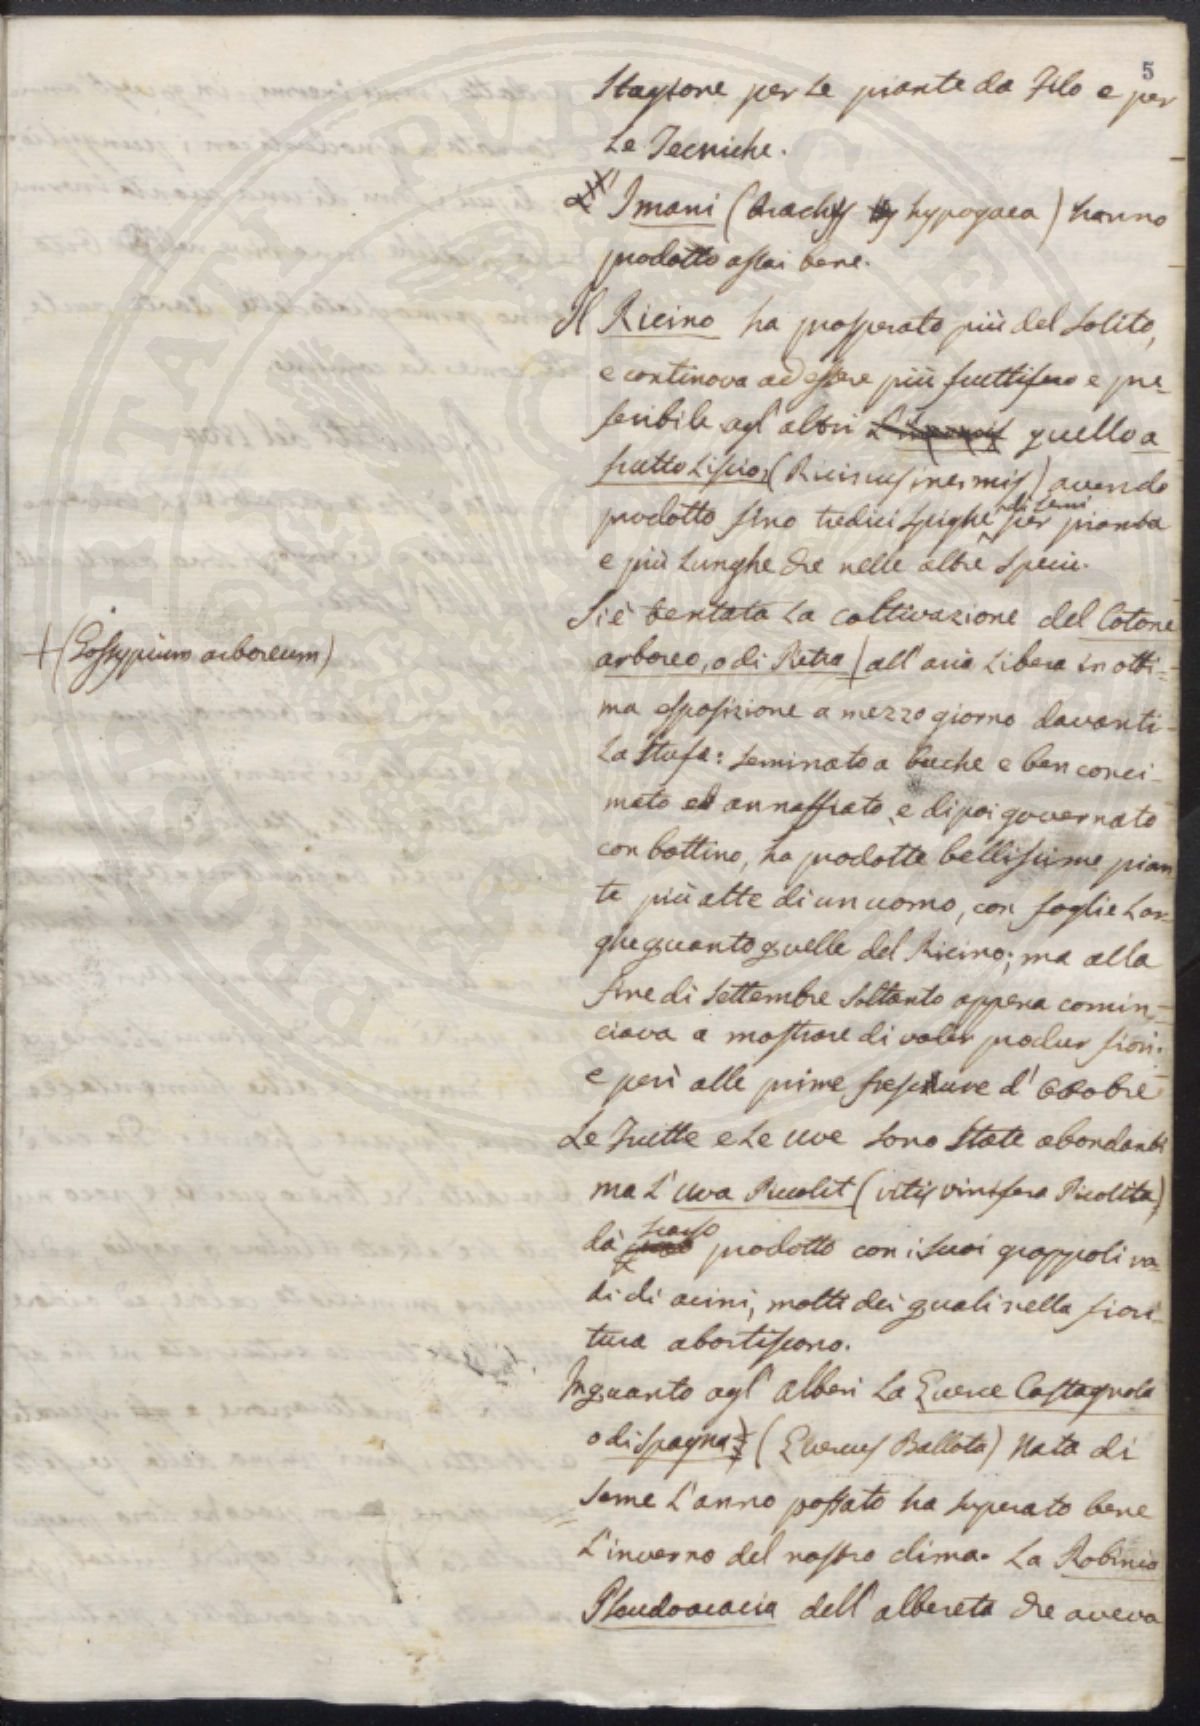 5
Stagione per le piante da Filo e per
le Tecniche.
Imani (Arachis hypogaea) hanno
prodotto assai bene.
Il Ricino ha prosperato più del solito,
e continova ad essere più fruttifero e pre-
feribile agl'altri quello a
frutto liscio, (Ricinus inermis) avendo
prodotto fino tredici spighe di semi per pianta
e più lunghe che nelle altre specie.
Si è tentata la coltivazione del Cotone
+ (Gossypium arboreum)
arboreo, o di Pietra) all'aria libera in otti-
ma esposizione a mezzo giorno davanti
la stufa: seminato a buche e ben conci-
mato ed annaffiato, e di poi governato
con bottino, ha prodotte bellissime pian
te più alte di un uomo, con foglie lar-
ghe quanto quelle del Ricino; ma alla
fine di settembre soltanto appena comin-
ciava a mostrare di voler produr fiori.
e perì alle prime frescure d'Ottobre
Le Frutte e le uve sono state abondanti
ma l'uva Piccolit (vitis vinifera Picolita)
dà scarso prodotto con i suoi grappoli ra-
di di acini, molti dei quali nella fiori-
tura abortiscono.
In quanto agl'alberi la Querce Castagnola
o di spagna (Quercus Ballota) nata di
seme l'anno passato ha superato bene
l'inverno del nostro clima. La Robinia
Pseudoacacia dell'albereta che aveva